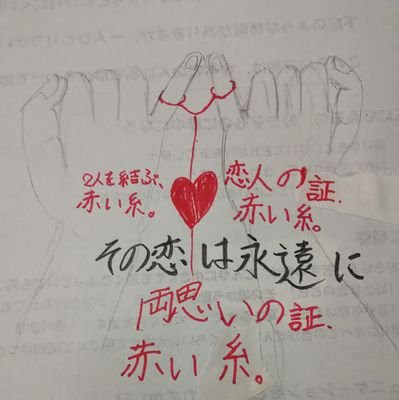 2人を結ぶ、
赤い糸。
恋人の証、
赤い糸。
その恋は永遠に
両思いの証、
赤い糸。